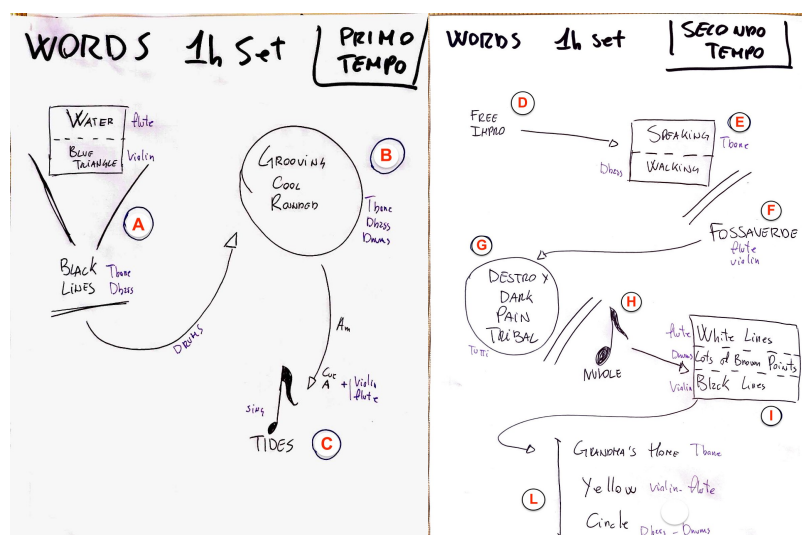 WORDS 1h Set
PRIMO
TEMPO
WATER flute
BLUE
TRIANGLE Violin
A
BLACK
LINES
Tbone
Dbass
DRUMS
B
GROOVING
COOL
ROUNDED
Tbone
Dbass
Drums
Am
Cue
A + Violin
flute
sing
TIDES
C
WORDS 1h set
SECONDO
TEMPO
D
FREE
IMPRO
E
SPEAKING Tbone
Dbass WALKING
F
FOSSAVERDE
flute
violin
G
DESTROY
DARK
PAIN
TRIBAL
Tutti
H
NUVOLE
flute White Lines
Drums Lots of Brown Points
Violin Black Lines
I
L
GRANDMA'S HOME Tbone
Yellow violin - flute
Circle Dbass - Drums